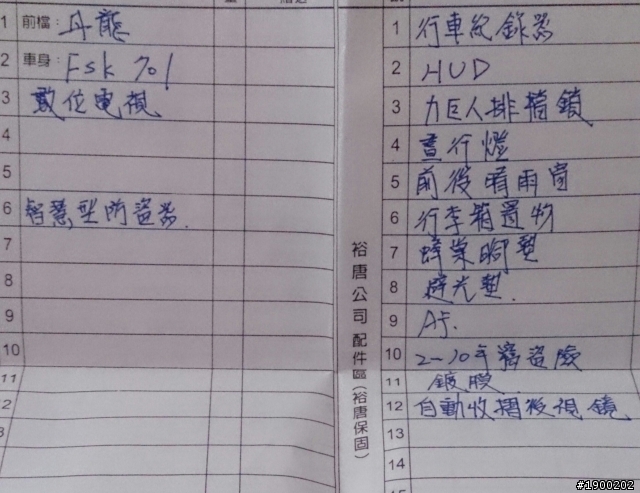 1 前檔：丹龍
2 車身：FSK 701
3 數位電視
4
5
6 智慧型防盜器
7
8
9
10
11
2
裕唐公司配件區(裕唐保固)
1 行車紀錄器
2 HUD
3 力巨人排檔鎖
4 晝行燈
5 前後晴雨窗
6 行李箱置物
7 蜂巢腳墊
8 避光墊
9
10 2-10年竊盜險
11 鍍膜
12 自動收摺後視鏡
13
14
#1900202